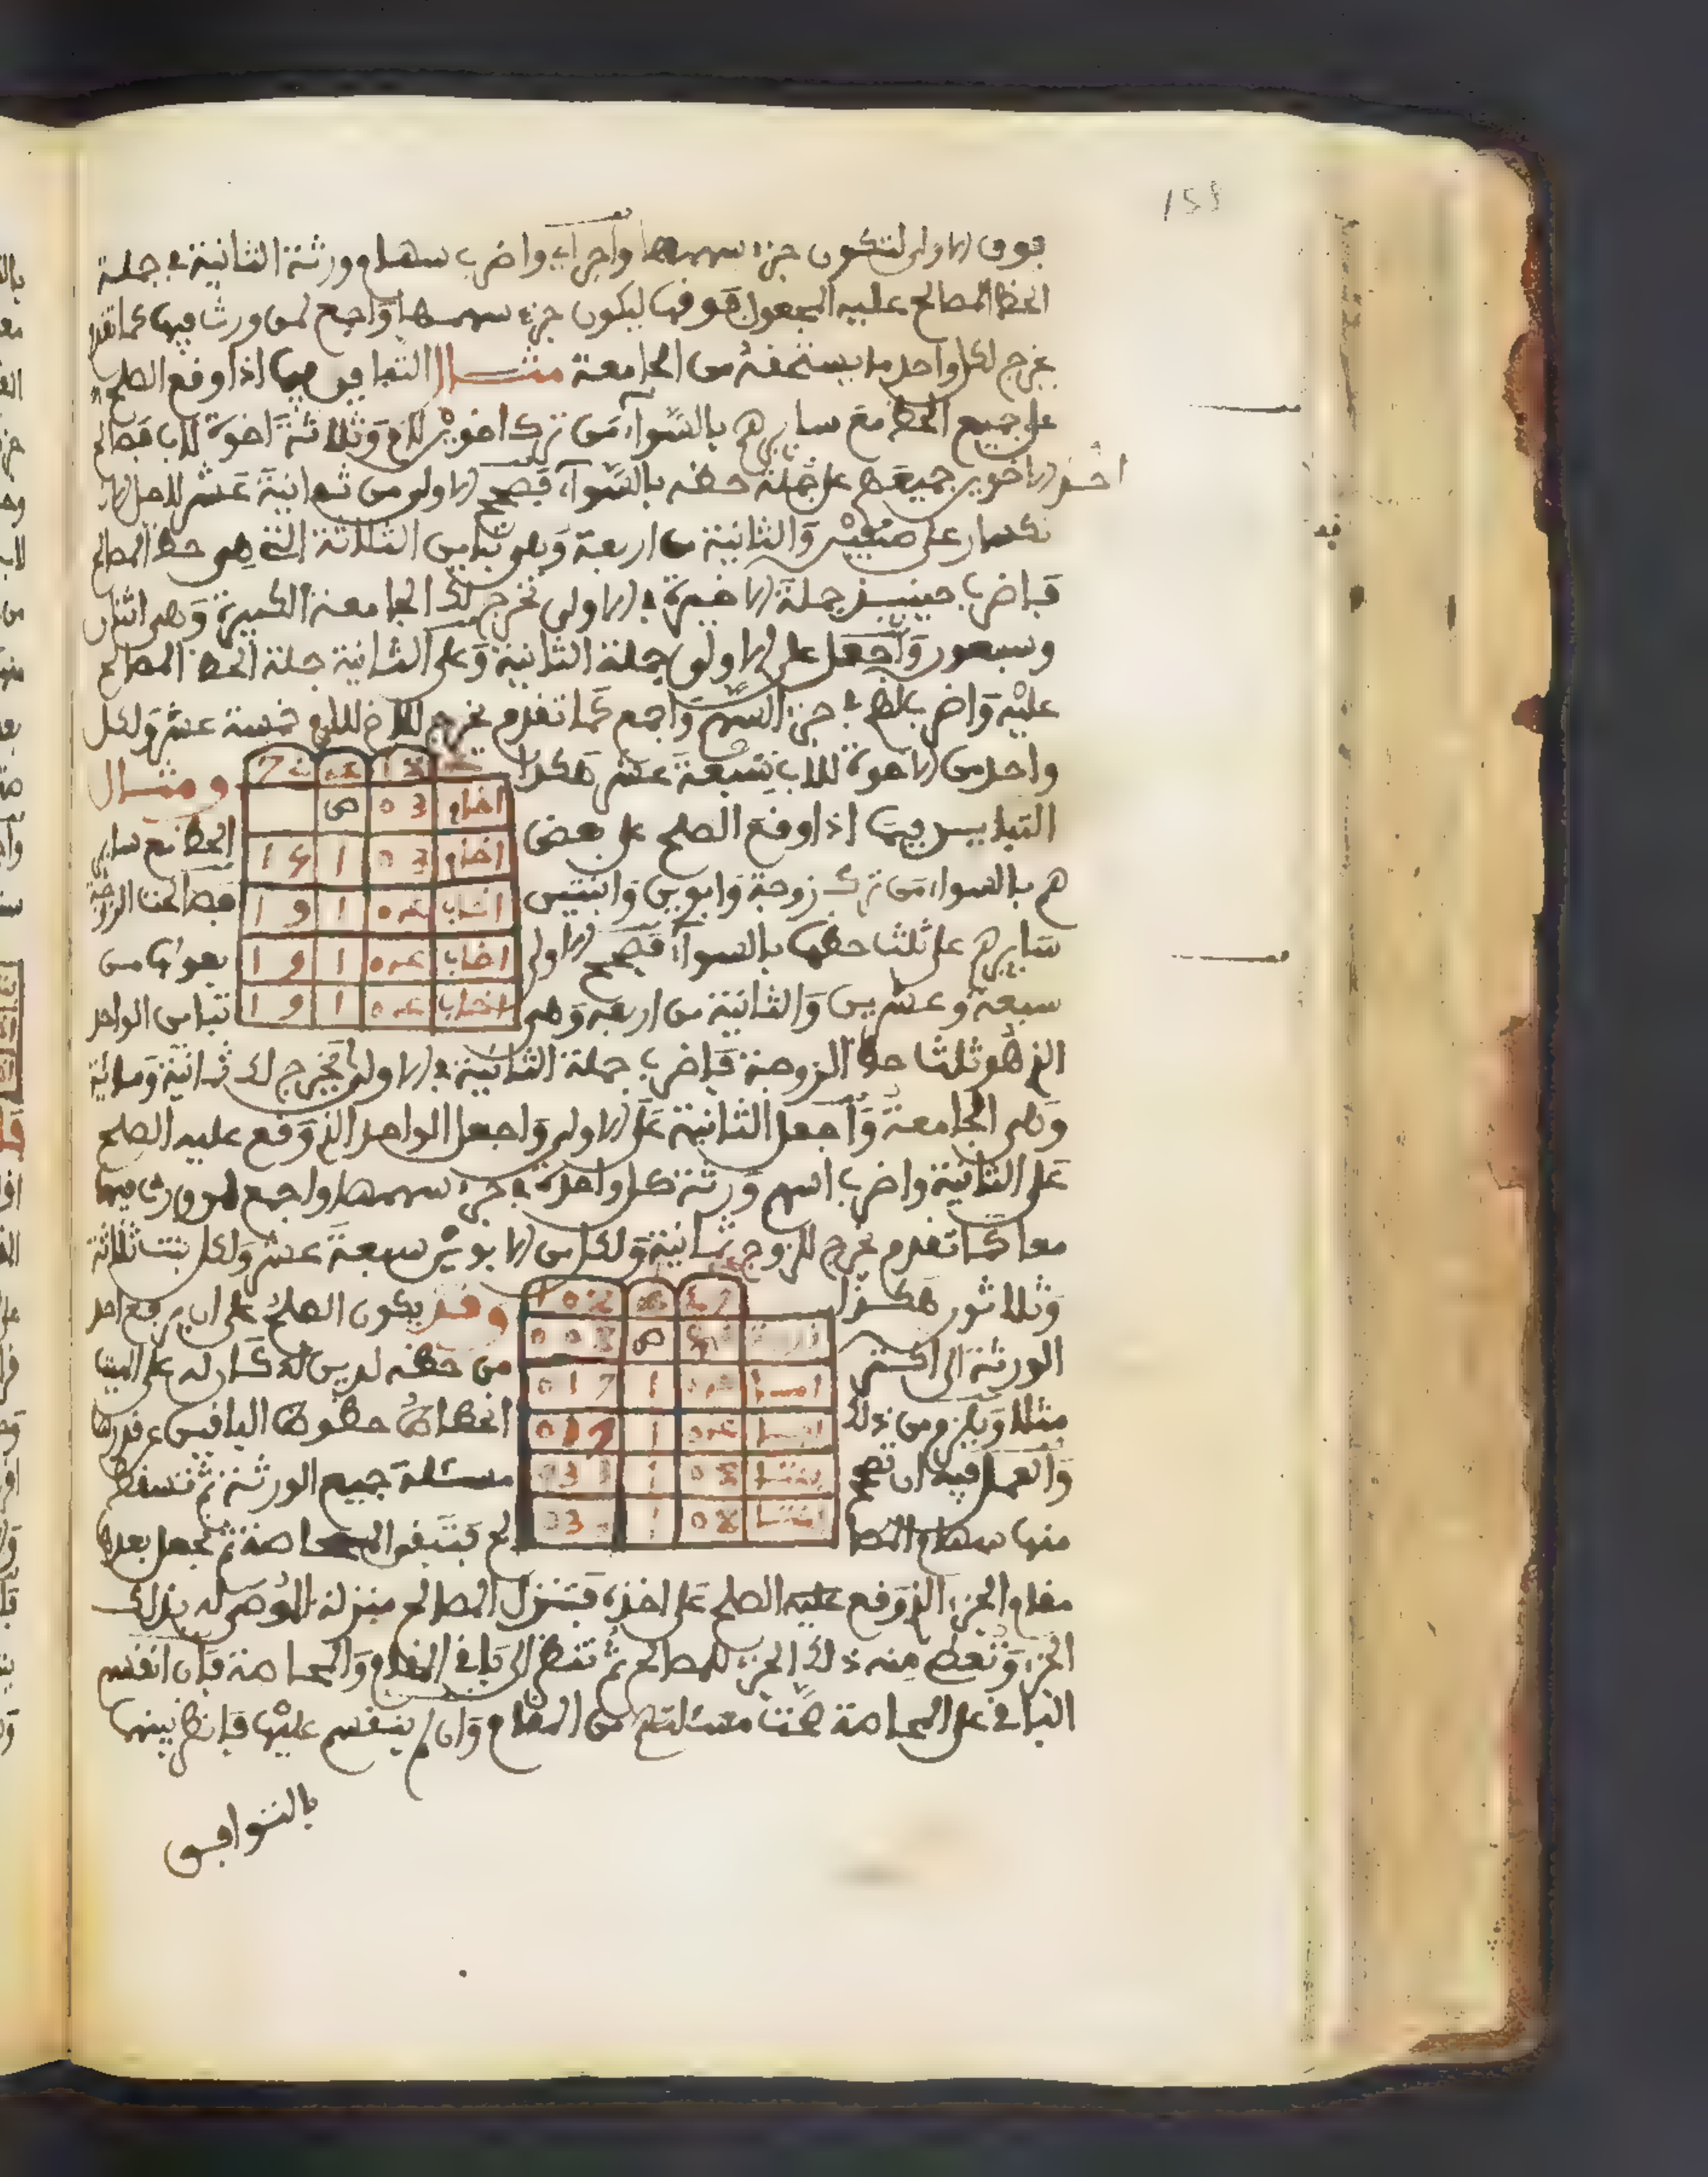 153
فوق الاولى لتكون جزء سهمها واجراء واضرب سهام ورثة الثانية في جملة
الحظ المصالح عليه المجعول فوقها ليكون جزء سهمها واجمع لمن ورث فيها كما تقدم
يخرج لكل واحد ما يستحقه من الجامعة مثال التباين فيما اذا وقع الصلح
على جميع الحظ مع سايرهم بالسواء من ترك اخوين للام وثلاثة اخوة للاب فصالح
احد الاخوين جميعهم على جملة حظه بالسواء فتصح الاولى من ثمانية عشر لاجل الا
نكسار على صنفين والثانية من اربعة وهي تباين الثلاثة التي هي حظ المصالح
فاضرب حينيذ جملة الاخيرة في الاولى تخرج لك الجامعة الكبيرة وهي اثنان
وسبعون واجعل على الاولى جملة الثانية وعلى الثانية جملة الحظ المصالح
عليه واضرب الحظ في جزء السهم واجمع كما تقدم يخرج للاخ للام خمسة عشر ولكل
واحد من الاخوة للاب تسعة عشر هكذا
72 04 18
ومثال
اخ لام 03 ص
التباين فيما اذا وقع الصلح على بعض
الحظ مع ساير
اخ لام 03 1 15
هم بالسواء من ترك زوجة وابوين وابنتين
فصالحت الزوجة
اخ لاب 04 1 19
سايرهم على ثلث حظها بالسواء فتصح الاولى
بعولها من
اخ لاب 04 1 19
سبعة وعشرين والثانية من اربعة وهي
تباين الواحد
اخ لاب 04 1 19
الذي هو ثلث حظ الزوجة فاضرب جملة الثانية في الاولى يخرج لك ثمانية ومائة
وهي الجامعة واجعل الثانية على الاولى واجعل الواحد الذي وقع عليه الصلح
على الثانية واضرب اسهم ورثة كل واحدة في جزء سهمها واجمع لمن ورث فيها
معا كما تقدم يخرج للزوجة ثمانية ولكل من الابوين سبعة عشر ولكل بنت ثلاثة
وثلاثون هكذا
108 04 27
وقد يكون الصلح على ان يرفع احد
008 ص 03
الورثة الى اكثر
من حظه لدين له كان له على الميت
017 1 04
مثلا ويلزم من ذلك
انحطاط حظوظ الباقين على قدرها
017 1 04
والعمل فيه ان تصحح
مسئلة جميع الورثة ثم تسقط
033 1 08
منها سهام المصا
لح فتبقى المحاصة ثم تجعل بعدها
033 1 08
مقام الجزء الذي وقع عليه الصلح على اخذه فتنزل المصالح منزلة الموصى له بذلك
الجزء وتعطي منه ذلك الجزء للمصالح ثم تنظر الى باقي المقام والمحاصة فان انقسم
الباقي على المحاصة صحت مسئلتهم من المقام وان لم ينقسم عليها فانظر بينهما
بالتوافق